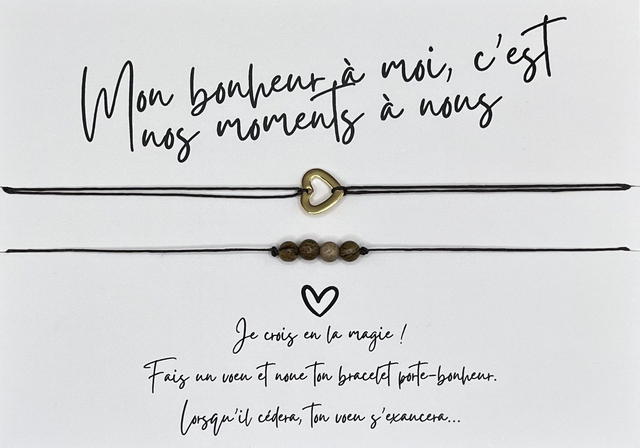 Mon bonheur à moi, c'est
nos moments à nous
Je crois en la magie !
Fais un voeu et noue ton bracelet porte-bonheur.
Lorsqu'il cédera, ton voeu s'exaucera...